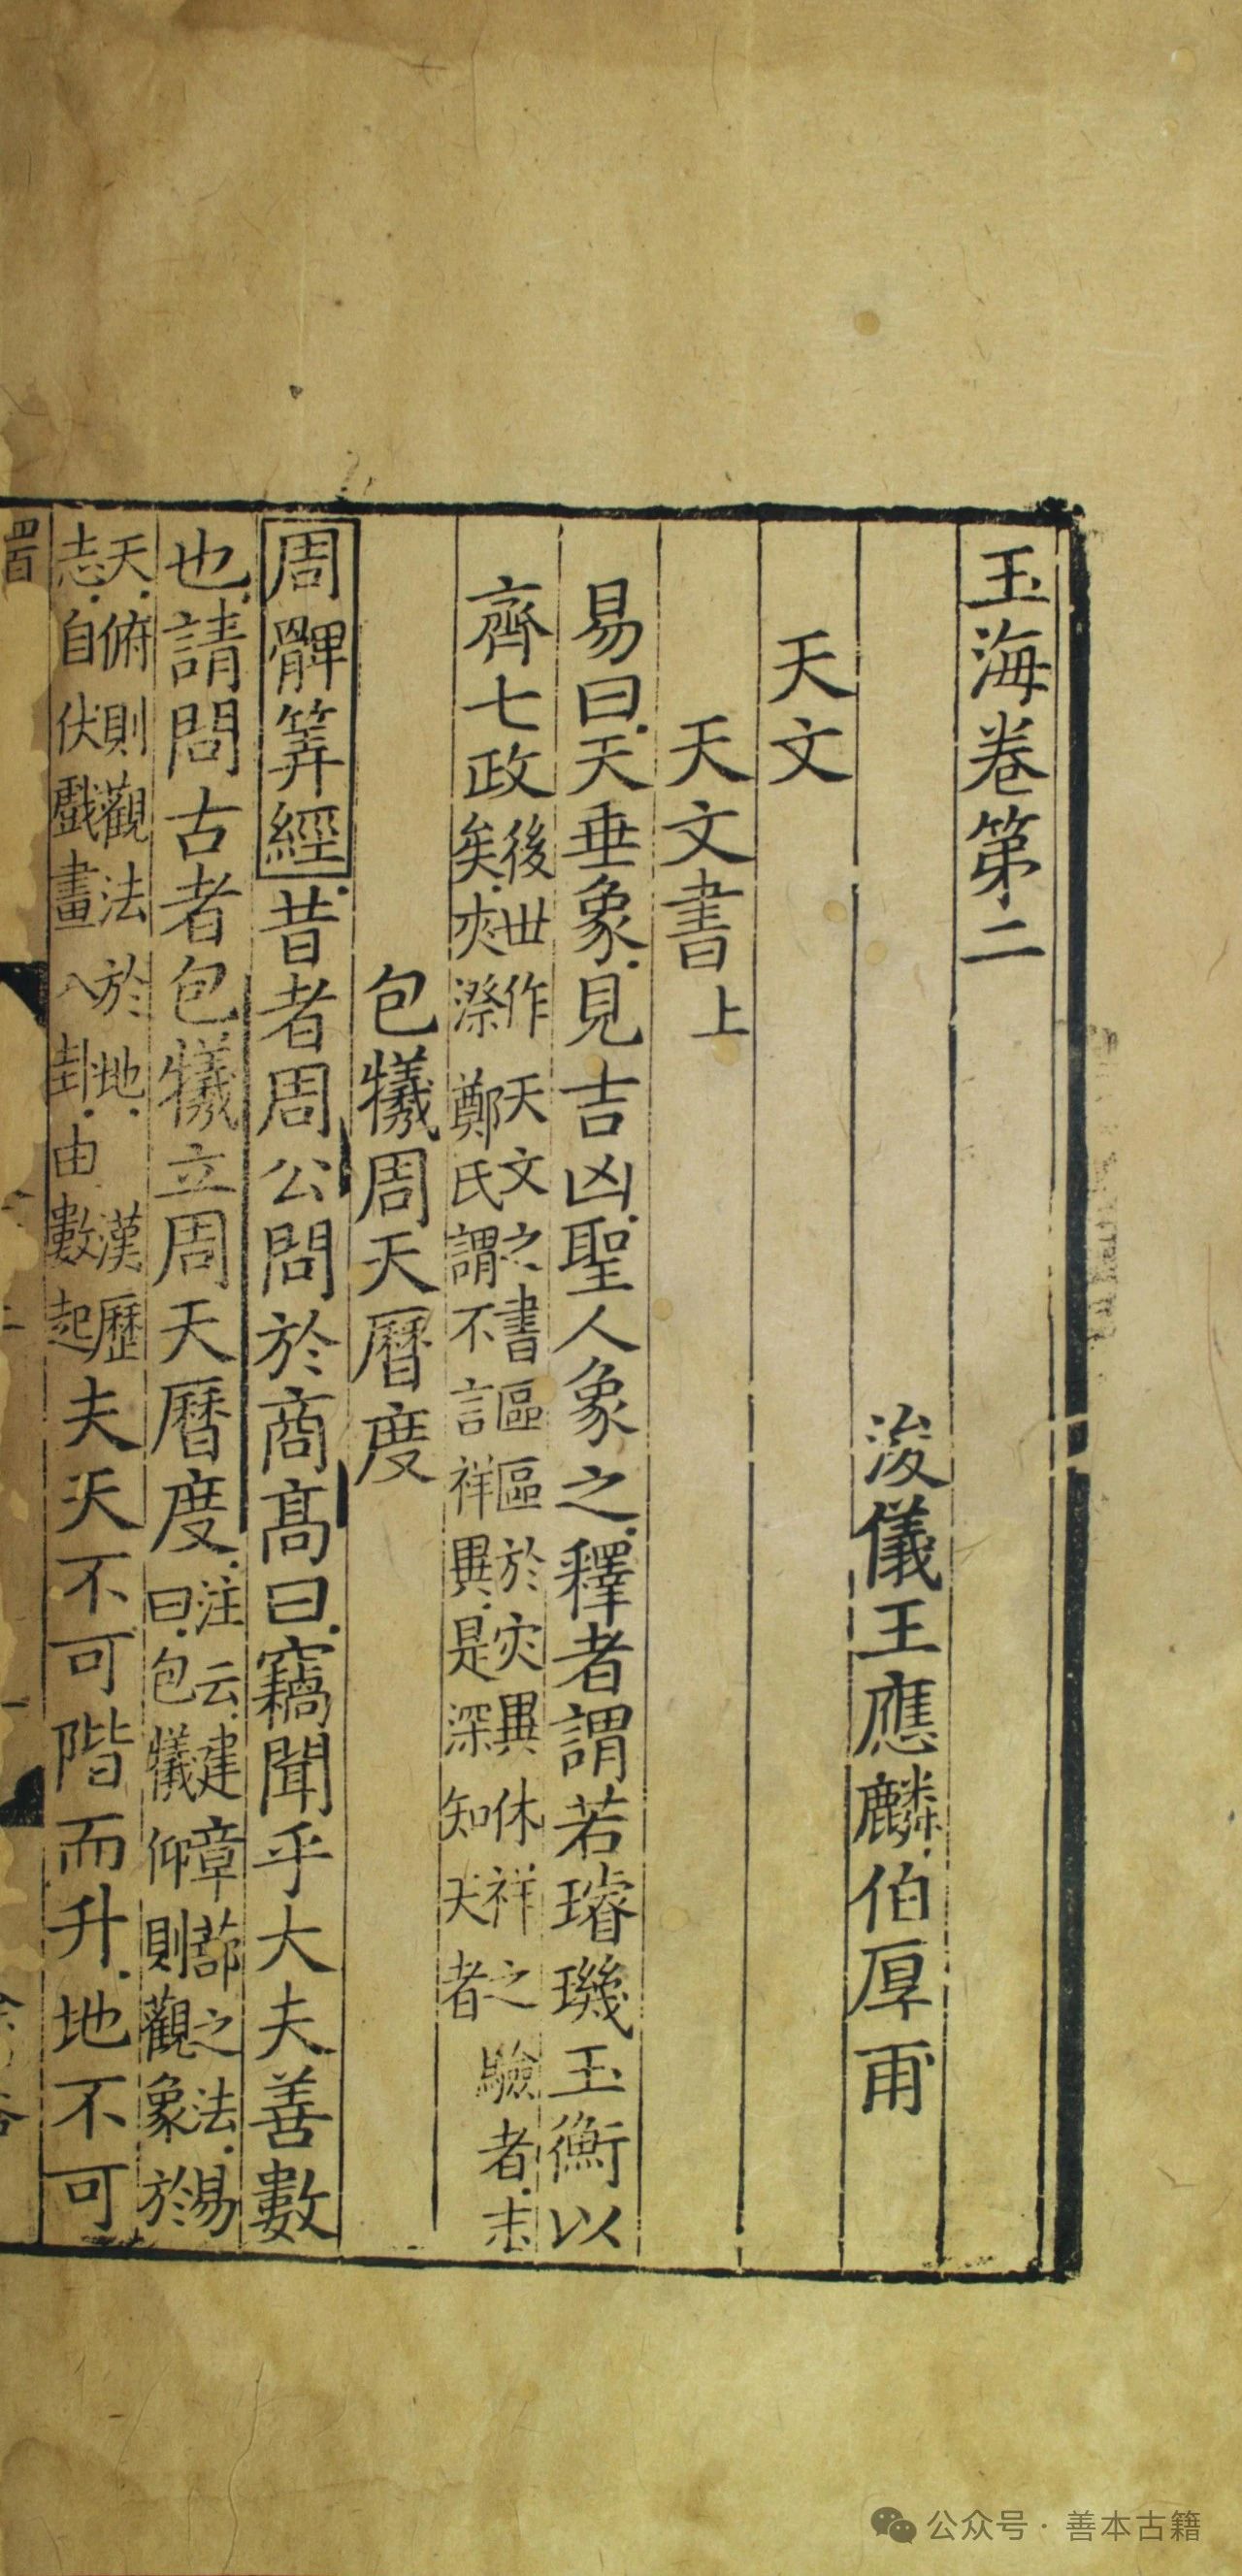 玉海卷第二
浚儀王應麟伯厚甫
天文
天文書上
易曰天垂象見吉凶聖人象之釋者謂若璿璣玉衡以
齊七政後世作天文之書區區於灾異休祥之驗者末
矣夾漈鄭氏謂不言祥異是深知天者
包犧周天曆度
周髀筭經昔者周公問於商髙曰竊聞乎大夫善數
也請問古者包犧立周天曆度注云建章蔀之法易
曰包犧仰則觀象於
天俯則觀法於地漢歷
志自伏戲畫八卦由數起夫天不可階而升地不可
公众号·善本古籍